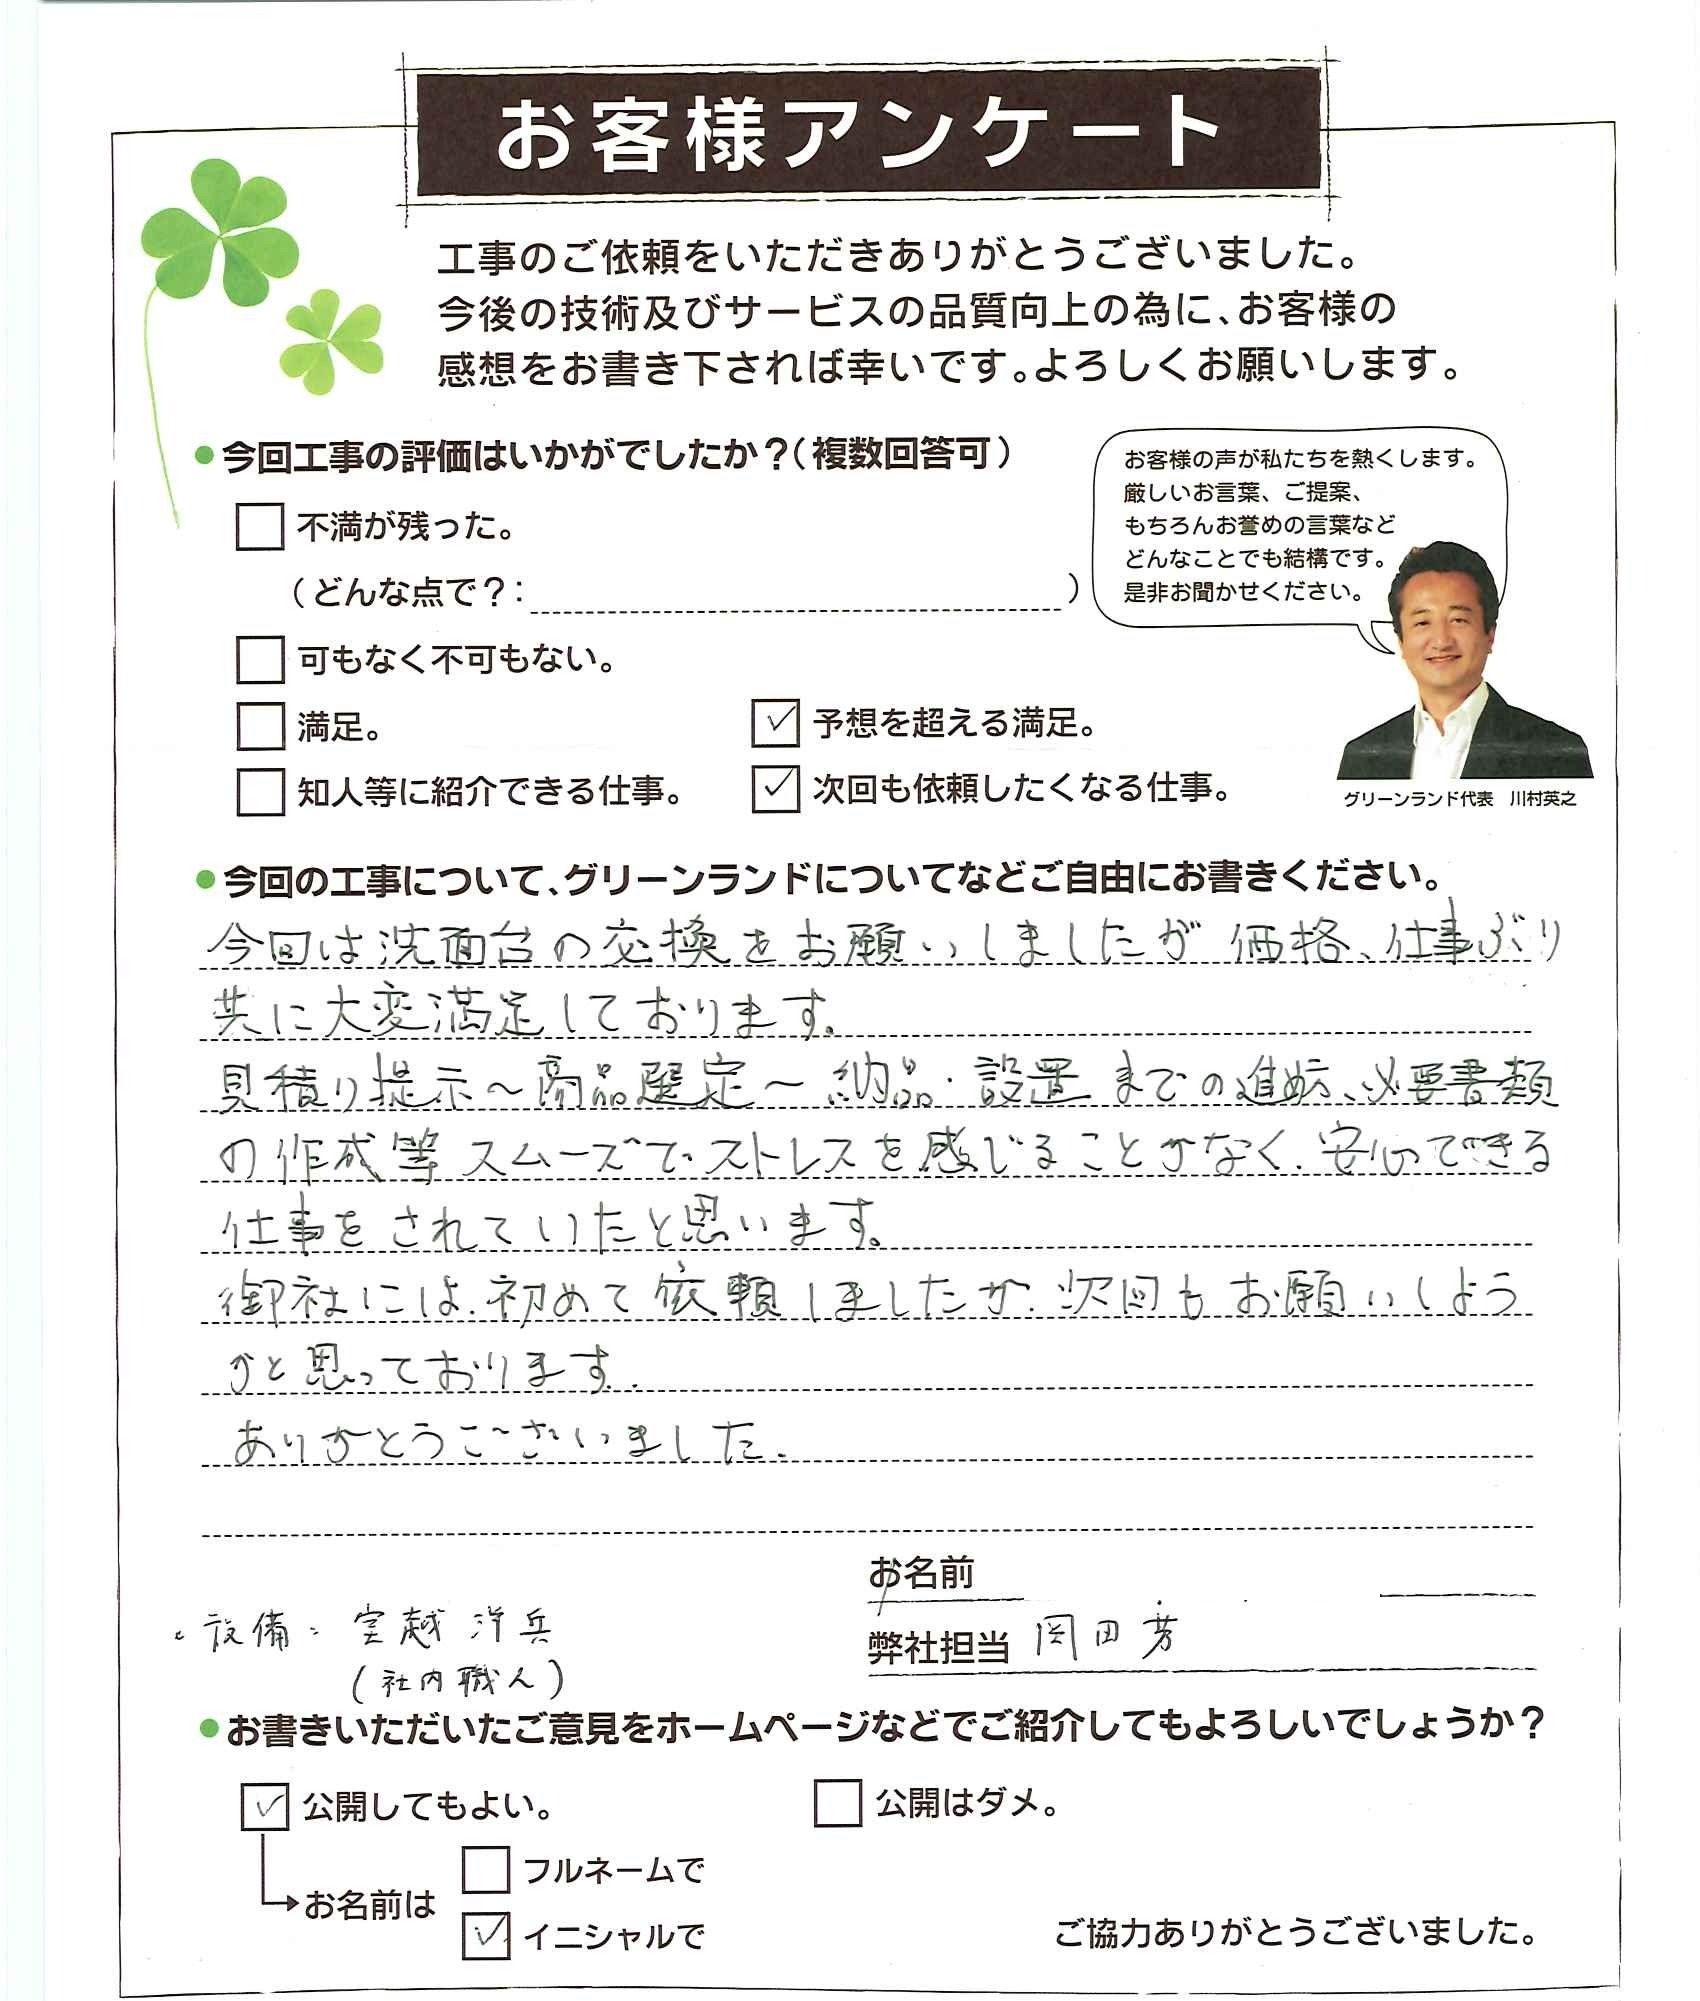 お客様アンケート
工事のご依頼をいただきありがとうございました。
今後の技術及びサービスの品質向上の為に、お客様の
感想をお書き下されば幸いです。よろしくお願いします。
●今回工事の評価はいかがでしたか？（複数回答可）
不満が残った。
（どんな点で？：　）
可もなく不可もない。
満足。
✓ 予想を超える満足。
知人等に紹介できる仕事。
✓ 次回も依頼したくなる仕事。
お客様の声が私たちを熱くします。
厳しいお言葉、ご提案、
もちろんお誉めの言葉など
どんなことでも結構です。
是非お聞かせください。
グリーンランド代表　川村英之
●今回の工事について、グリーンランドについてなどご自由にお書きください。
今回は洗面台の交換をお願いしましたが 価格、仕事ぶり
共に大変満足しております。
見積り提示～商品選定～納品・設置までの進め方、必要書類
の作成等スムーズで、ストレスを感じることがなく、安心のできる
仕事をされていたと思います。
御社には、初めて依頼しましたが、次回もお願いしよう
かと思っております。
ありがとうございました。
お名前
弊社担当 岡田芳
・設備： 洋兵
（社内職人）
●お書きいただいたご意見をホームページなどでご紹介してもよろしいでしょうか？
✓ 公開してもよい。
公開はダメ。
お名前は
フルネームで
✓ イニシャルで
ご協力ありがとうございました。